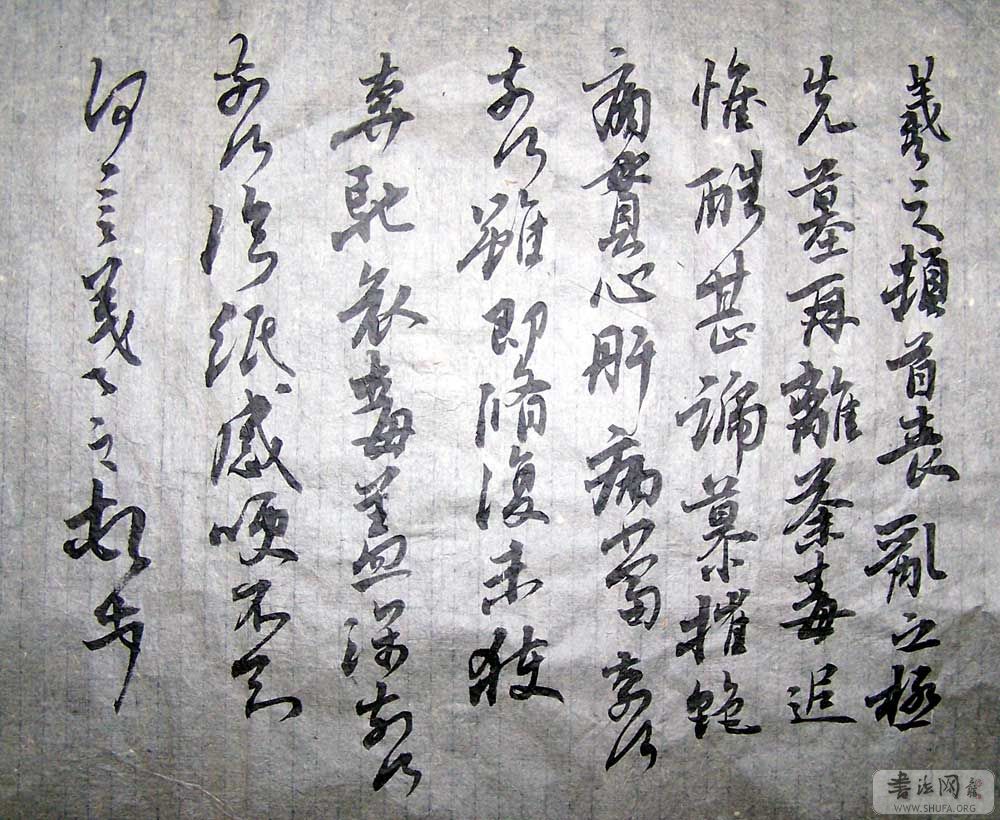 羲之頓首喪亂之極
先墓再離荼毒追
惟酷甚號慕摧絶
痛貫心肝痛當奈何
奈何雖即脩復未獲
奔馳哀毒益深奈何
奈何臨紙感哽不知
何言羲之頓首
書法网
WWW.SHUFA.ORG